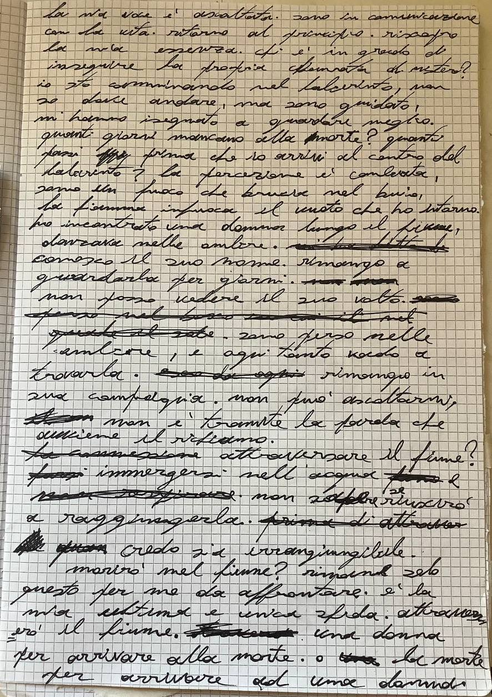 la mia voce è ascoltata. sono in comunicazione
con la vita. ritorno al principio. riscopro
la mia essenza. chi è in grado di
inseguire la propria chiamata di mistero?
io sto camminando nel labirinto, non
so dove andare, ma sono guidato,
mi hanno insegnato a guardare meglio.
quanti giorni mancano alla morte? quanti
passi prima che io arrivi al centro del
labirinto? la percezione è cambiata,
sono un fuoco che brucia nel buio,
la fiamma infuoca il vuoto che ho intorno.
ho incontrato una donna lungo il fiume,
danzava nelle ombre.
conosco il suo nome. rimango a
guardarla per giorni.
non posso vedere il suo volto.
perso nel bosco
sono perso nelle
, e ogni tanto vado a
trovarla. rimango in
sua compagnia. non può ascoltarmi,
non è tramite la parola che
avviene il richiamo.
la connessione attraversare il fiume?
immergersi nell'acqua e
non respirare non so se riuscirò
a raggiungerla. prima di attraver
credo sia irraggiungibile.
morirò nel fiume? rimane solo
questo per me da affrontare. è la
mia ultima e unica sfida. attraver
erò il fiume. una donna
per arrivare alla morte. o la morte
per arrivare ad una donna.